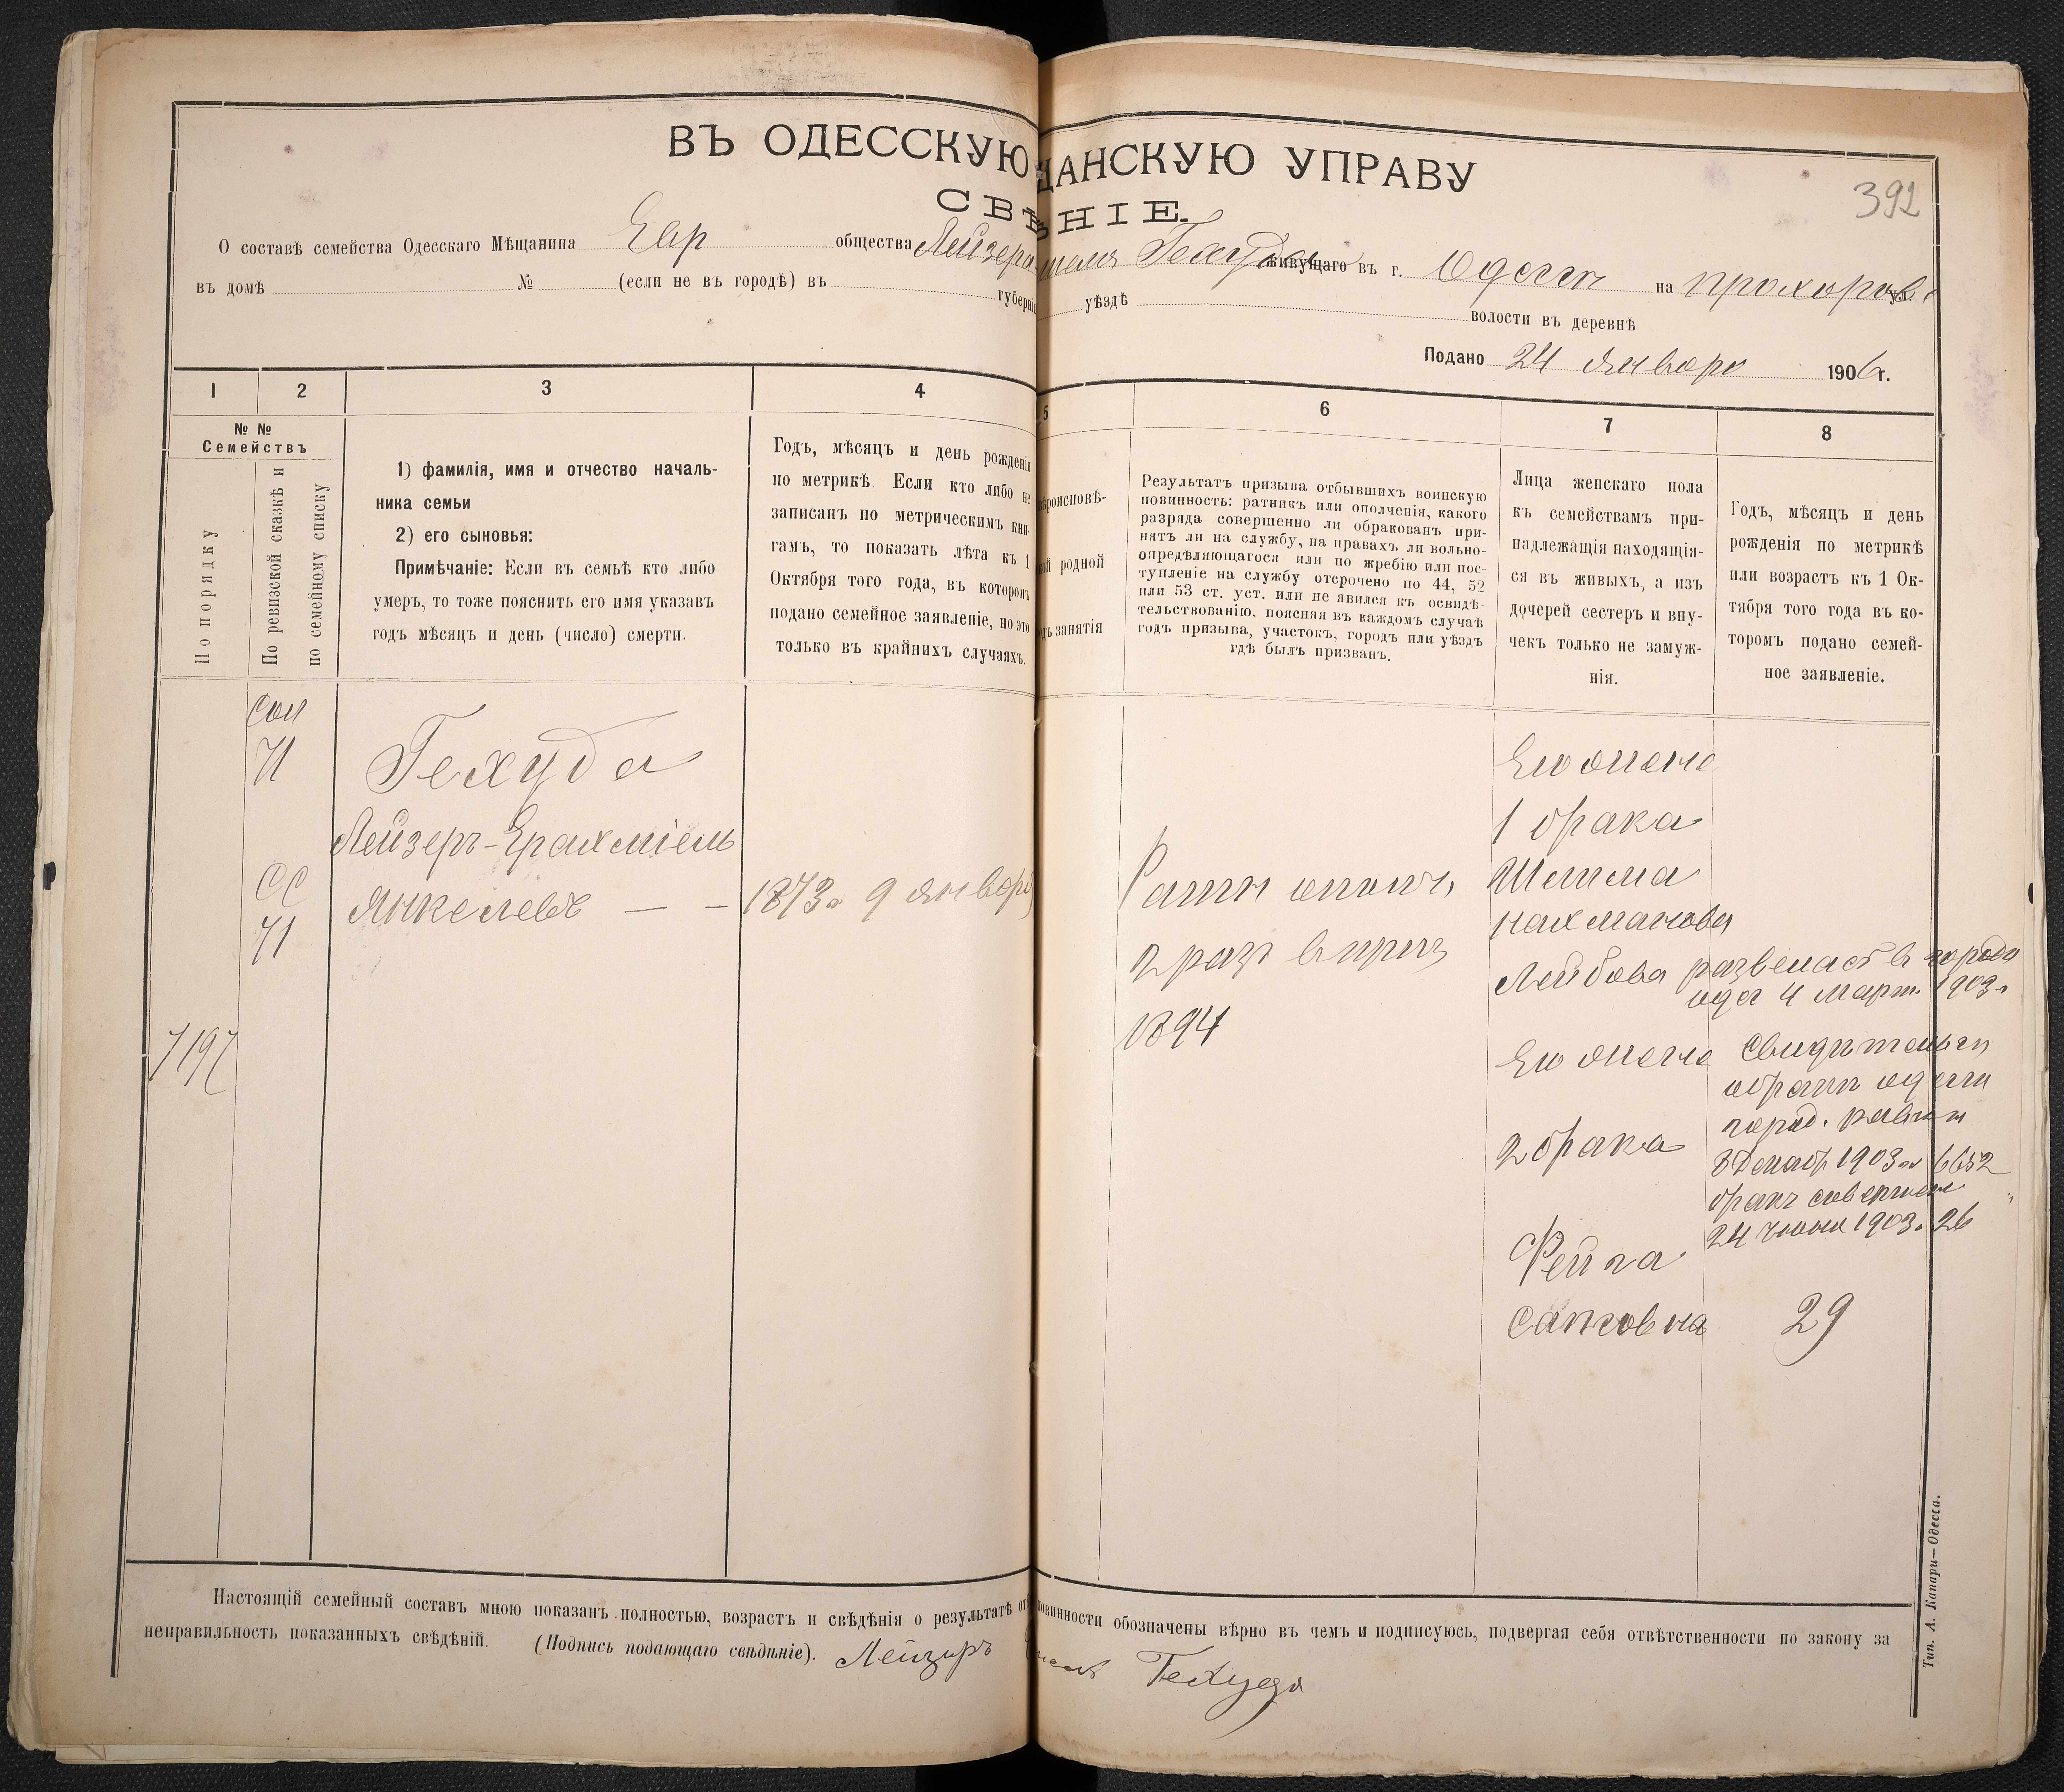 ВЪ ОДЕССКУЮ ЩАНСКУЮ УПРАВУ
392
СВѢ НІЕ.
О составѣ семейства Одесскаго Мѣщанина Евр общества Лейзера Гехуда живущаго въ г. Одессѣ на Прохоров ул.
въ домѣ № (если не въ городѣ) въ губерніи уѣздѣ волости въ деревнѣ
Подано 24 Января 1906 г.
1 2 3 4 5 6 7 8
№ №
Семействъ
По порядку
По ревизской сказкѣ и
по семейному списку
1) фамилія, имя и отчество началь-
ника семьи
2) его сыновья:
Примѣчаніе: Если въ семьѣ кто либо
умеръ, то тоже пояснить его имя указавъ
годъ мѣсяцъ и день (число) смерти.
Годъ, мѣсяцъ и день рожденія
по метрикѣ Если кто либо не
записанъ по метрическимъ кни-
гамъ, то показать лѣта къ 1
Октября того года, въ которомъ
подано семейное заявленіе, но это
только въ крайнихъ случаяхъ.
ѣроисповѣ-
родной
занятія
Результатъ призыва отбывшихъ воинскую
повинность: ратникъ или ополченія, какого
разряда совершенно ли обракованъ при-
нятъ ли на службу, на правахъ ли вольно-
опредѣляющагося или по жребію или пос-
тупленіе на службу отсрочено по 44, 52
или 53 ст. уст. или не явился къ освидѣ-
тельствованію, поясняя въ каждомъ случаѣ
годъ призыва, участокъ, городъ или уѣздъ
гдѣ былъ призванъ.
Лица женскаго пола
къ семействамъ при-
надлежащія находящія-
ся въ живыхъ, а изъ
дочерей сестеръ и вну-
чекъ только не замуж-
нія.
Годъ, мѣсяцъ и день
рожденія по метрикѣ
или возрастъ къ 1 Ок-
тября того года въ ко-
торомъ подано семей-
ное заявленіе.
71
Гехуда
Лейзеръ-Ерахміель
Янкелевъ — — 1873 г 9 января
СС
71
7197
Ратн ополч
2 разр в приз
1894
Его жена
1 брака
Шейма
Нахманова
Лейбова развелась в городе
Одес 4 Март. 1903 г
Его жена
2 брака
Фейга
Сапсовна
Свидѣтельст
о бракѣ Одесск
город. раввин
8 Декабр 1903 г № 6652
бракъ совершен
24 июня 1903 г 26
29
Настоящій семейный составъ мною показанъ полностью, возрастъ и свѣдѣнія о результатѣ от повинности обозначены вѣрно въ чемъ и подписуюсь, подвергая себя отвѣтственности по закону за
неправильность показанныхъ свѣдѣній. (Подпись подающаго свѣдѣніе). Лейзеръ Гехуда
Тип. А. Капари—Одесса.